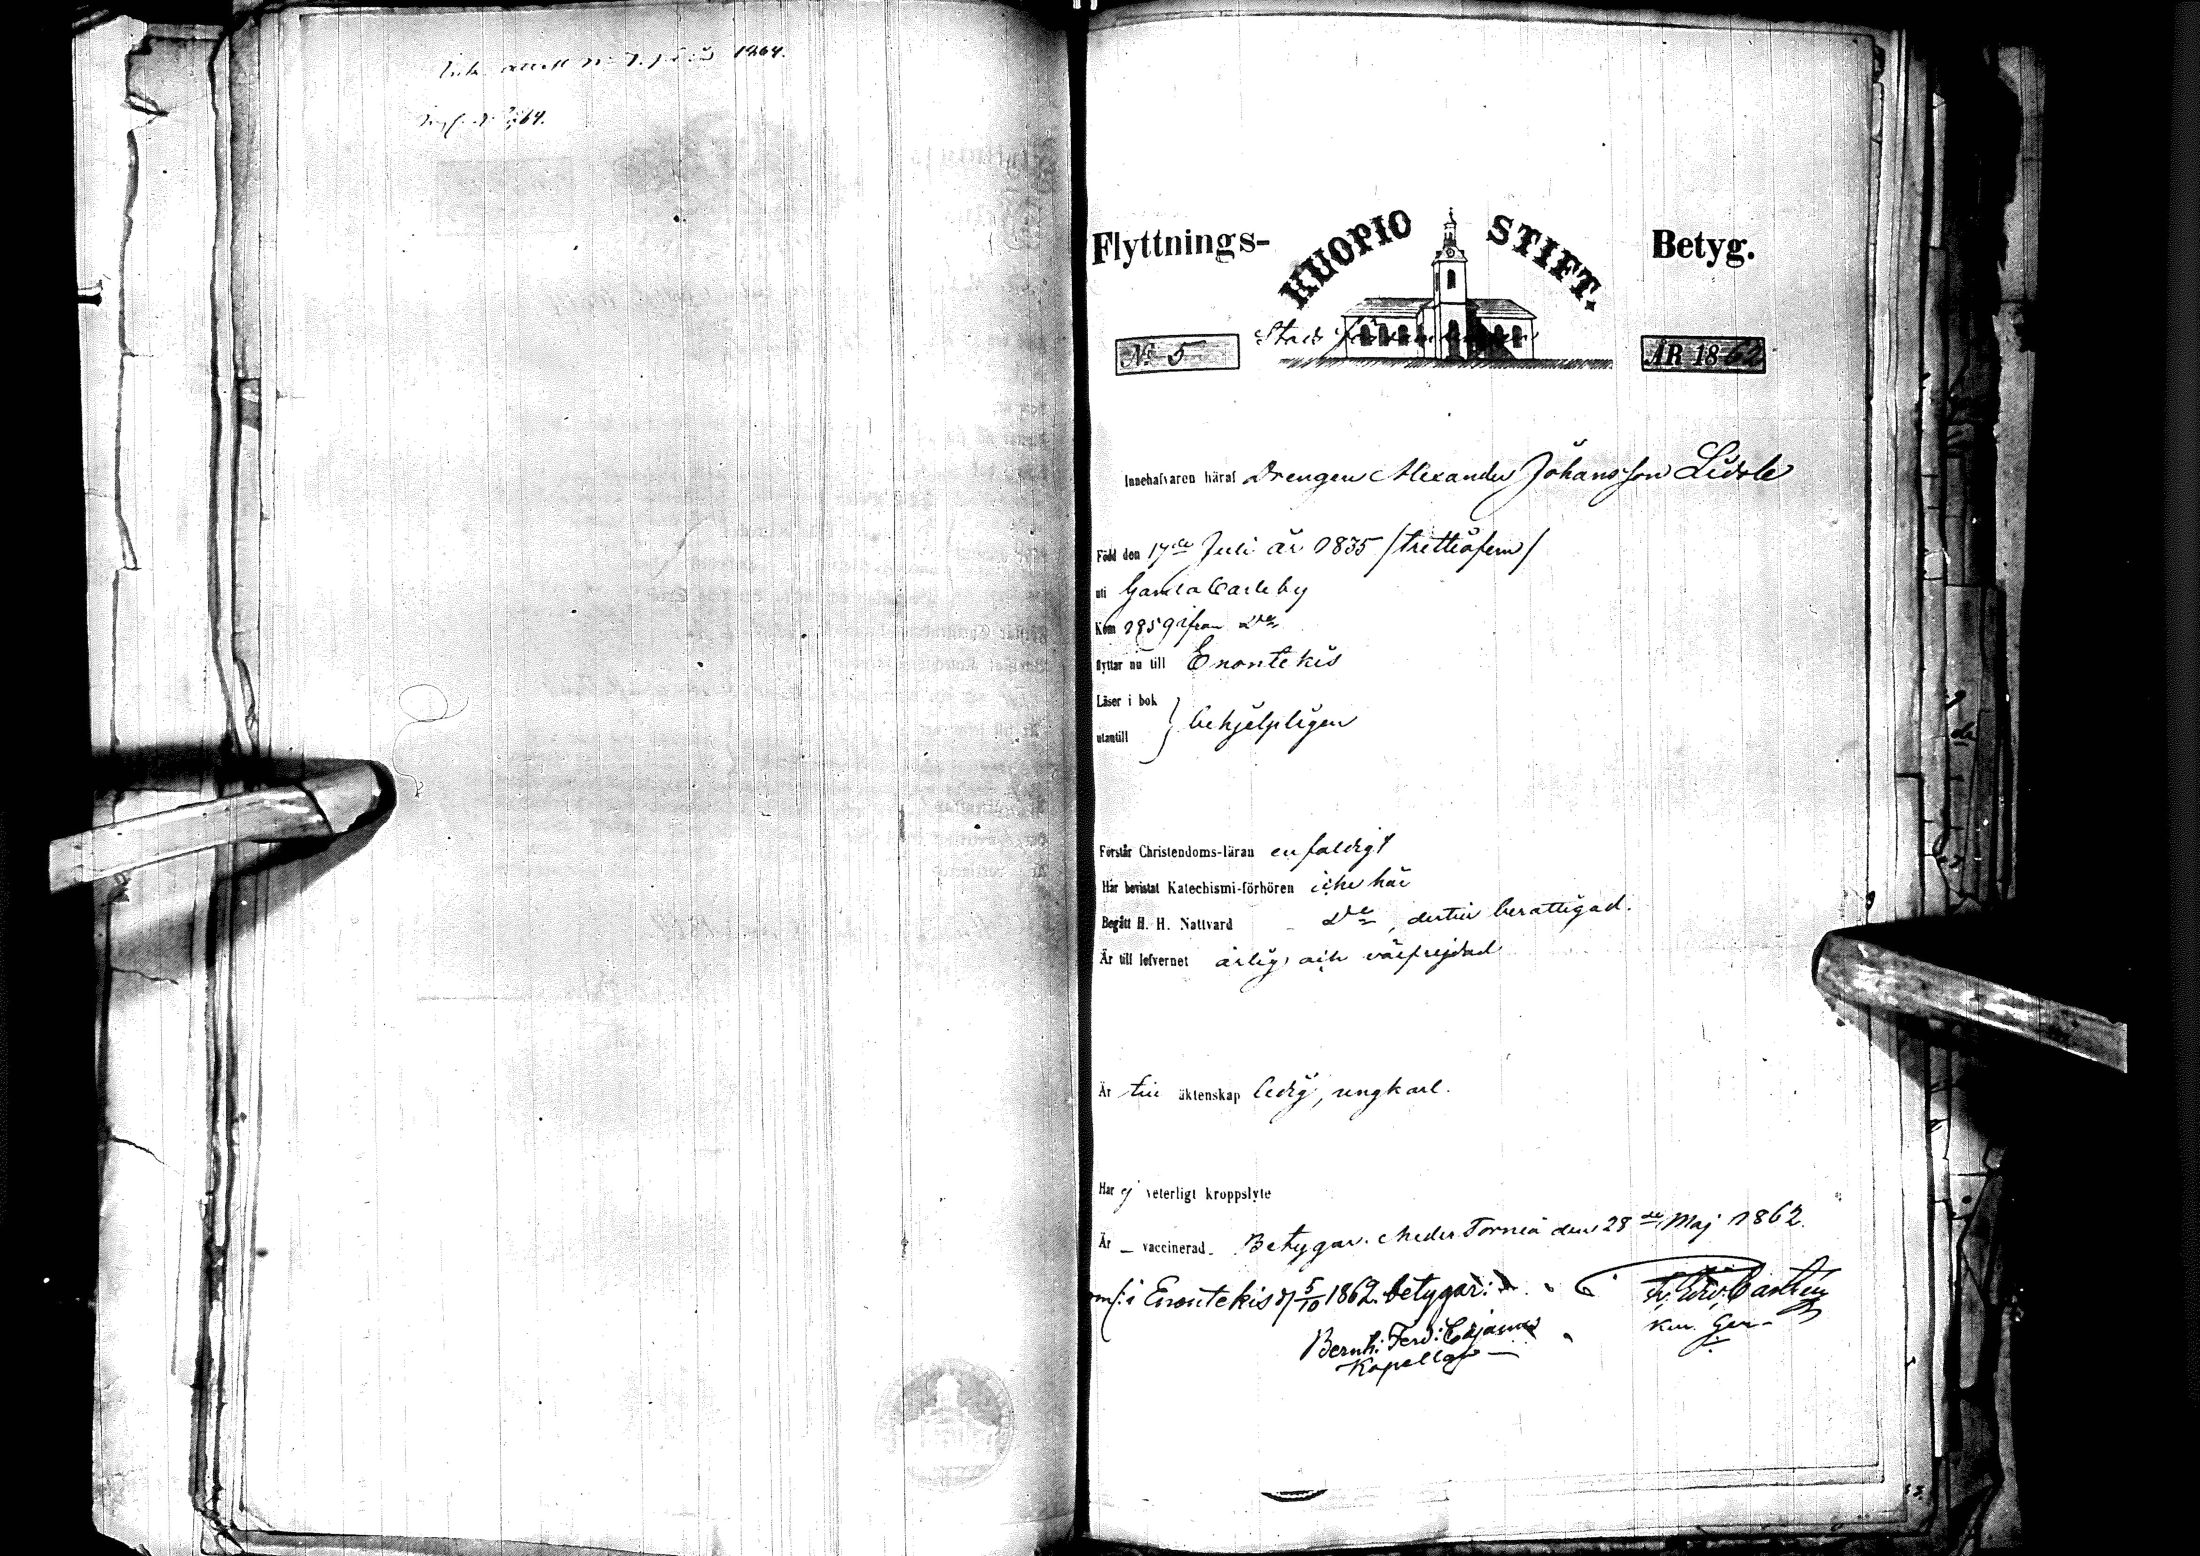 1864.
Flyttnings- KUOPIO STIFT. Betyg.
Stads församlingen
No 5 ÅR 1862
Innehafvaren häraf Drengen Alexander Johansson
Född den 17de Juli år 1835 /trettiofem/
uti Gamla Carleby
Kom 1859 ifrån Do
flyttar nu till Enontekis
Läser i bok
utantill } behjelpligen
Förstår Christendoms-läran enfaldigt
Har bevistat Katechismi-förhören icke här
Begått H. H. Nattvard Do, dertill berättigad.
Är till lefvernet ärlig och välfrejdad
Är till äktenskap ledig, ungkarl.
Har ej veterligt kroppslyte
Är – vaccinerad. Betygar. Neder Torneå den 28de Maj 1862.
i Enontekis d 5/10 1862. betygar:
Bernh: Ferd: Cajanus
Kapellan